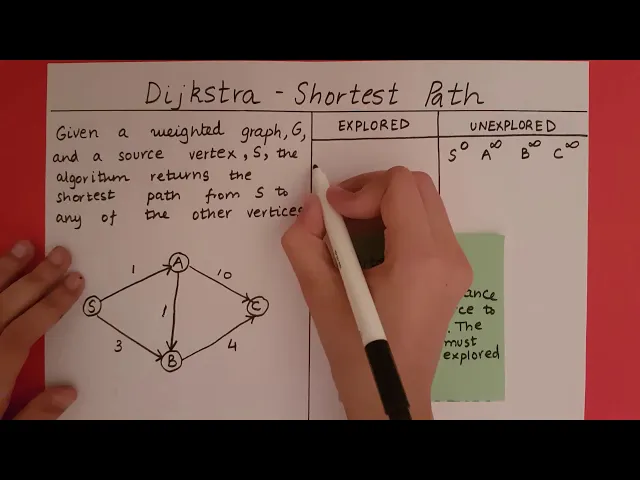 Dijkstra - Shortest Path
Given a weighted graph, G,
and a source vertex, S, the
algorithm returns the
shortest path from S to
any of the other vertices
EXPLORED
UNEXPLORED
S⁰ A^∞ B^∞ C^∞
to
. The
must
explored
A
1
10
S
1
C
3
4
B